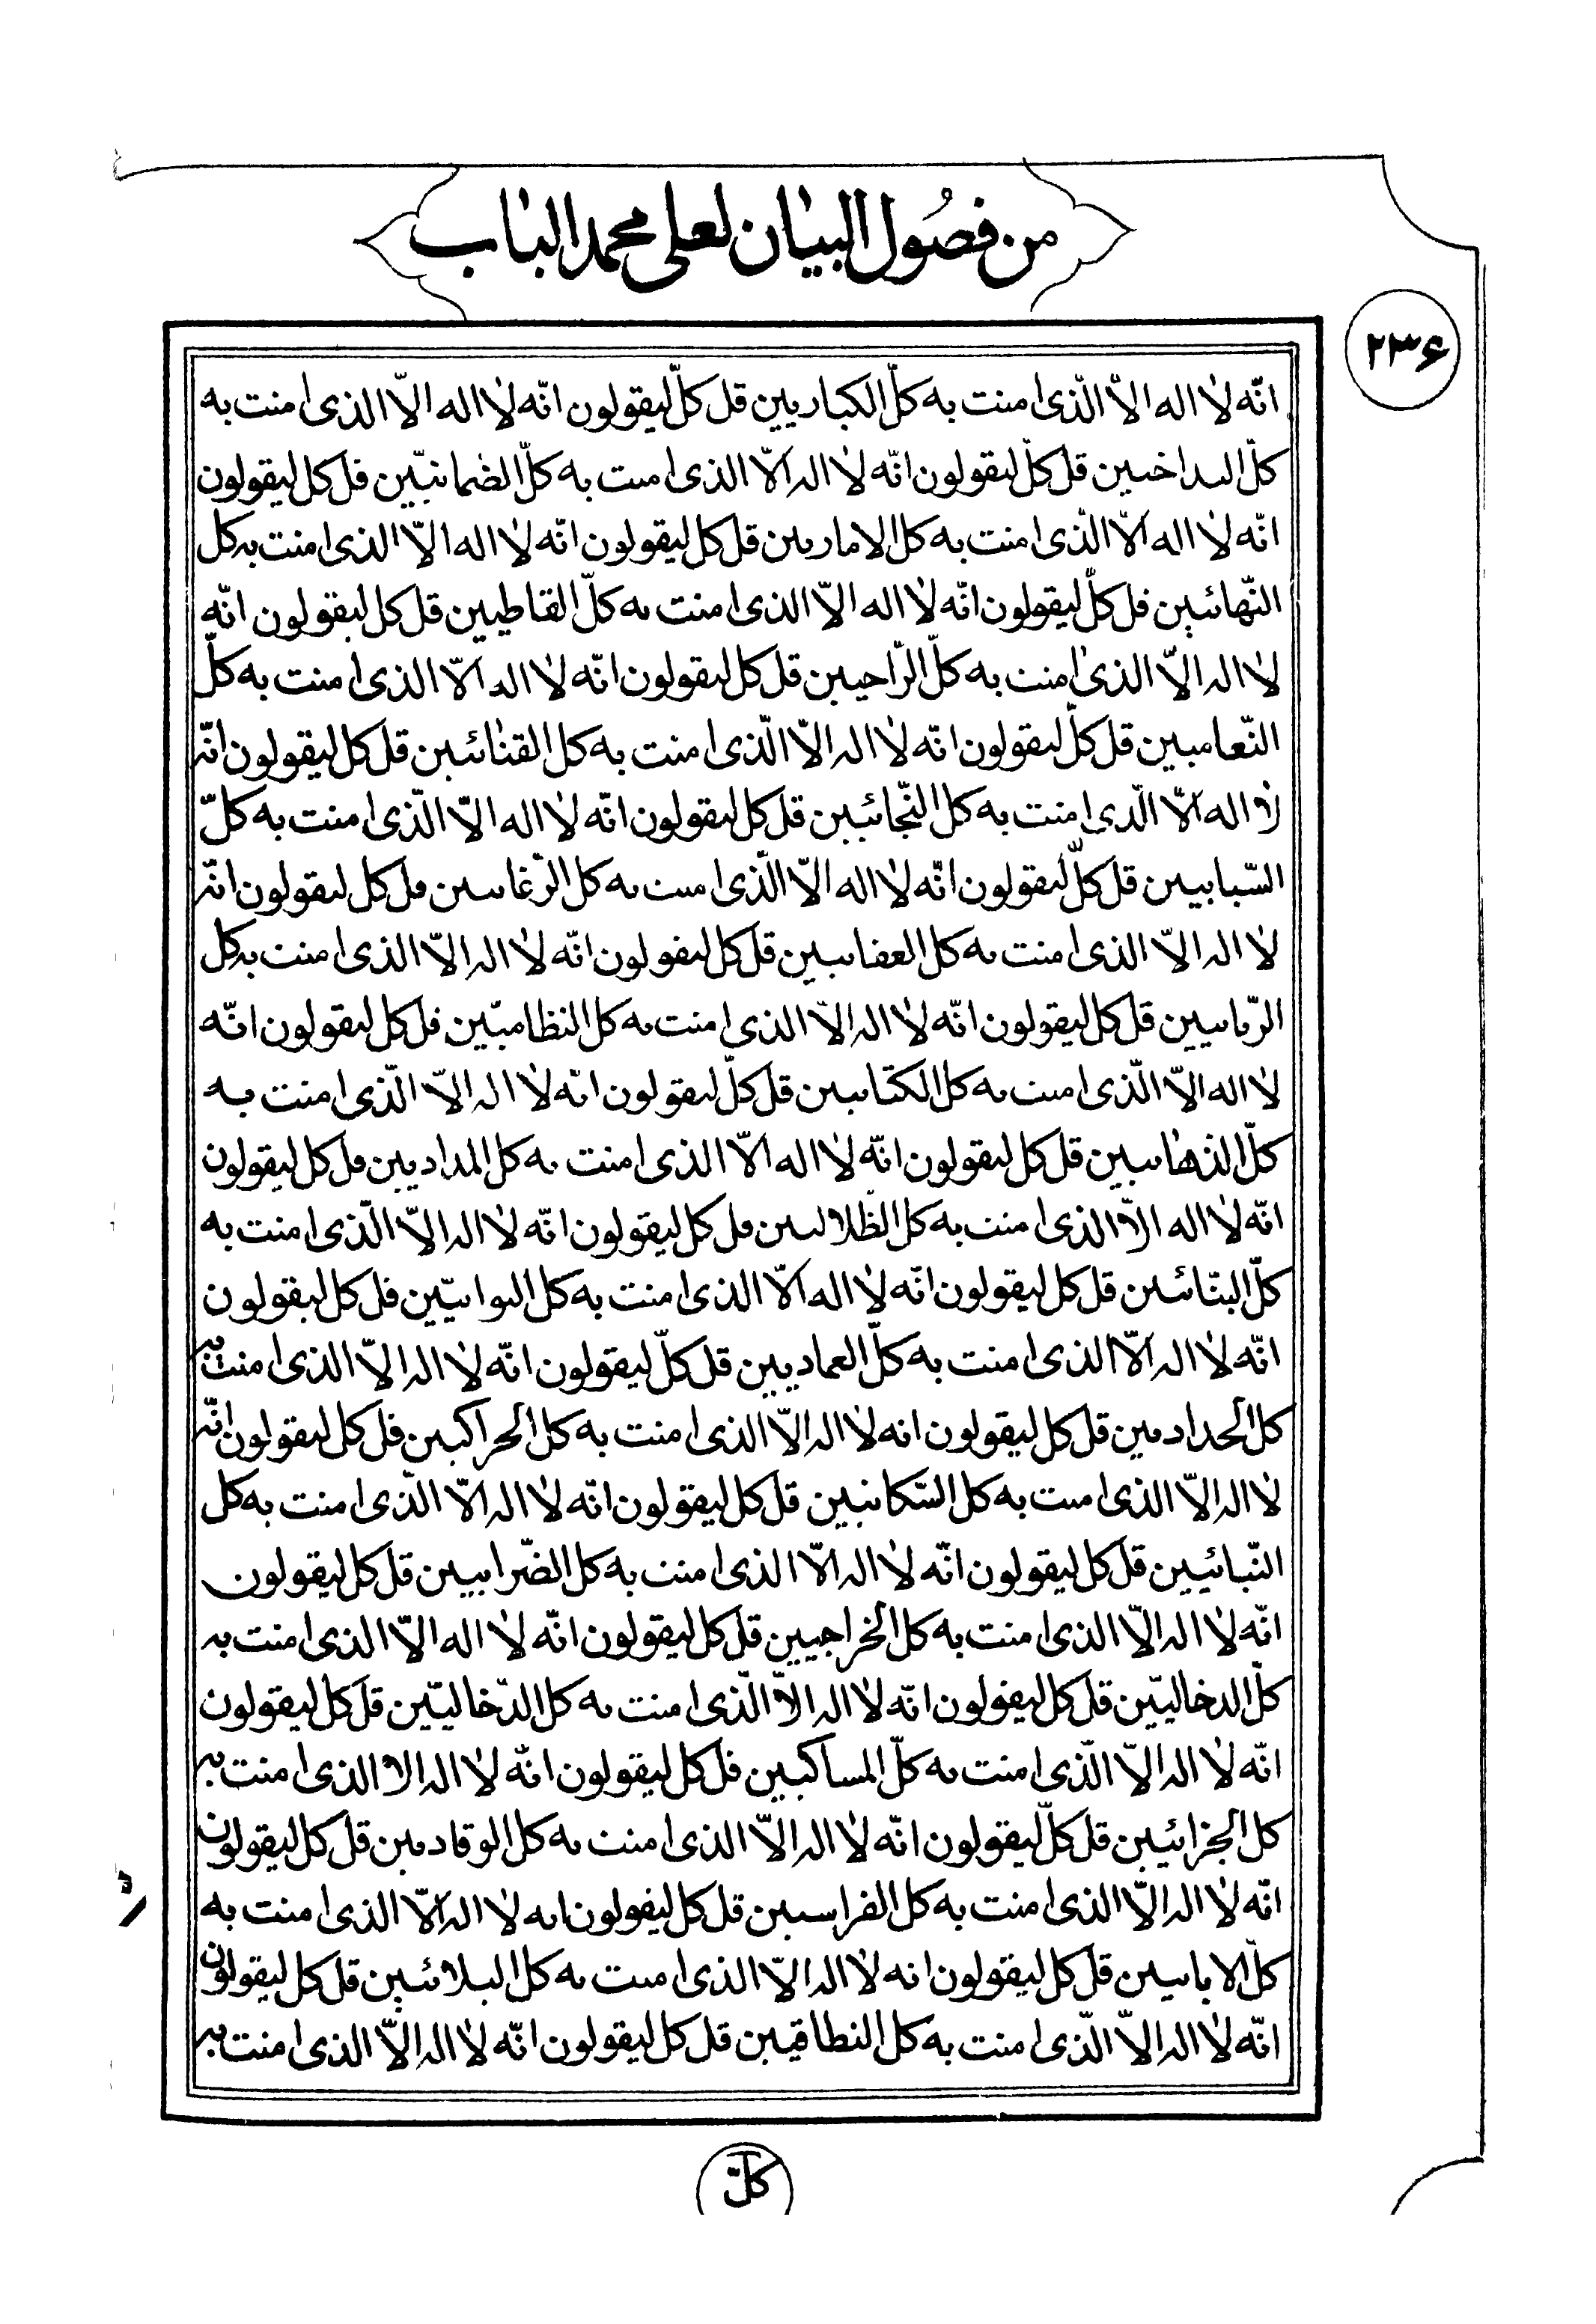 من فصُول البيان لعلی محمد الباب
۲۳۶
انّه لا اله الّا الّذی امنت به كلّ الكباريين قل كلّ ليقولون انّه لا اله الّا الذی امنت به
كلّ قل كلّ ليقولون انّه لا اله الّا الذی امنت به كلّ الضمانيّين قل كل ليقولون
انّه لا اله الّا الّذی امنت به كل الاماريين قل كل ليقولون انّه لا اله الّا الذی امنت به كل
النّهائيين قل كلّ ليقولون انّه لا اله الّا الذی امنت به كلّ القاطيين قل كل ليقولون انّه
لا اله الّا الذی امنت به كلّ الرّاحيين قل كل ليقولون انّه لا اله الّا الذی امنت به كلّ
النّعاميين قل كلّ ليقولون انّه لا اله الّا الّذی امنت به كل القنائيين قل كل ليقولون انّه
لا اله الّا الّذی امنت به كل النّجائيين قل كل ليقولون انّه لا اله الّا الّذی امنت به كلّ
السّبابيين قل كلّ ليقولون انّه لا اله الّا الّذی امنت به كل قل كل ليقولون انّه
لا اله الّا الذی امنت به كل قل كل ليقولون انّه لا اله الّا الذی امنت به كل
قل كل ليقولون انّه لا اله الّا الذی امنت به كل النظاميّين قل كل ليقولون انّه
لا اله الّا الّذی امنت به كل الكتّابيين قل كلّ ليقولون انّه لا اله الّا الّذی امنت به
كلّ قل كل ليقولون انّه لا اله الّا الذی امنت به كل المداديين قل كل ليقولون
انّه لا اله الّا الذی امنت به كل الظّلاليين قل كل ليقولون انّه لا اله الّا الّذی امنت به
كلّ البنّائيين قل كل ليقولون انّه لا اله الّا الذی امنت به كل البوابيّين قل كل ليقولون
انّه لا اله الّا الذی امنت به كلّ العماديين قل كلّ ليقولون انّه لا اله الّا الذی امنت به
كل الحداديين قل كل ليقولون انه لا اله الّا الذی امنت به كل الحراكيين قل كل ليقولون انّه
لا اله الّا الذی امنت به كل السّكانيين قل كل ليقولون انّه لا اله الّا الّذی امنت به كل
النّبائيين قل كل ليقولون انّه لا اله الّا الذی امنت به كل الضّرابيين قل كل ليقولون
انّه لا اله الّا الذی امنت به كل الخراجيين قل كل ليقولون انّه لا اله الّا الذی امنت به
كلّ الدخاليّين قل كل ليقولون انّه لا اله الّا الّذی امنت به كل الدّخاليّين قل كل ليقولون
انّه لا اله الّا الّذی امنت به كلّ المساكيين قل كل ليقولون انّه لا اله الا الذی امنت به
كل الجزائيين قل كلّ ليقولون انّه لا اله الّا الذی امنت به كل الوقاديين قل كل ليقولون
انّه لا اله الّا الذی امنت به كل الفراسيين قل كل ليقولون انه لا اله الّا الذی امنت به
كلّ قل كل ليقولون انه لا اله الّا الذی امنت به كل البلائيين قل كل ليقولون
انّه لا اله الّا الّذی امنت به كل النطاقيين قل كل ليقولون انّه لا اله الّا الذی امنت به
كلّ